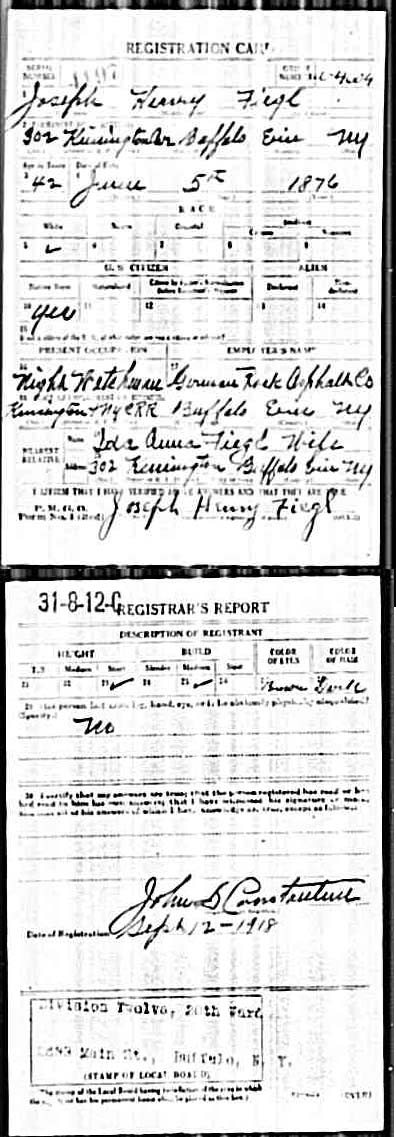 REGISTRATION CARD
SERIAL NUMBER
ORDER NUMBER
Joseph Henry Fiegl
302 Kensington Av Buffalo Erie NY
Age in Years Date of Birth
42 June 5th 1876
RACE
White Negro Oriental Indian
Citizen Noncitizen
U. S. CITIZEN ALIEN
Native Born Naturalized Citizen by Father's Naturalization Before Registrant's Majority Declarant Non-declarant
10 yes 11 12 13 14
15
If not a citizen of the U. S., of what nation are you a citizen or subject?
PRESENT OCCUPATION EMPLOYER'S NAME
Night Watchman German Rock Asphalt Co
Kensington + NYCRR Buffalo Erie NY
NEAREST RELATIVE
Name Ida Anna Fiegl Wife
Address 302 Kensington Buffalo Erie NY
I AFFIRM THAT I HAVE VERIFIED ABOVE ANSWERS AND THAT THEY ARE TRUE
P. M. G. O.
Form No. 1 (Red) Joseph Henry Fiegl
31-8-12-C REGISTRAR'S REPORT
DESCRIPTION OF REGISTRANT
HEIGHT BUILD COLOR OF EYES COLOR OF HAIR
Tall Medium Short Slender Medium Stout
21 22 23 24 25 26 Brown Dark
29 Has person lost arm, leg, hand, eye, or is he obviously physically disqualified?
(Specify.)
No
30 I certify that my answers are true; that the person registered has read or has
had read to him his own answers; that I have witnessed his signature or mark,
and that all of his answers of which I have knowledge are true, except as follows:
Date of Registration Sept 12-1918
Division Twelve, 20th Ward
Main St., Buffalo, N. Y.
(STAMP OF LOCAL BOARD)
(The stamp of the Local Board having jurisdiction of the area in which
the registrant has his permanent home shall be placed in this box.)
(OVER)